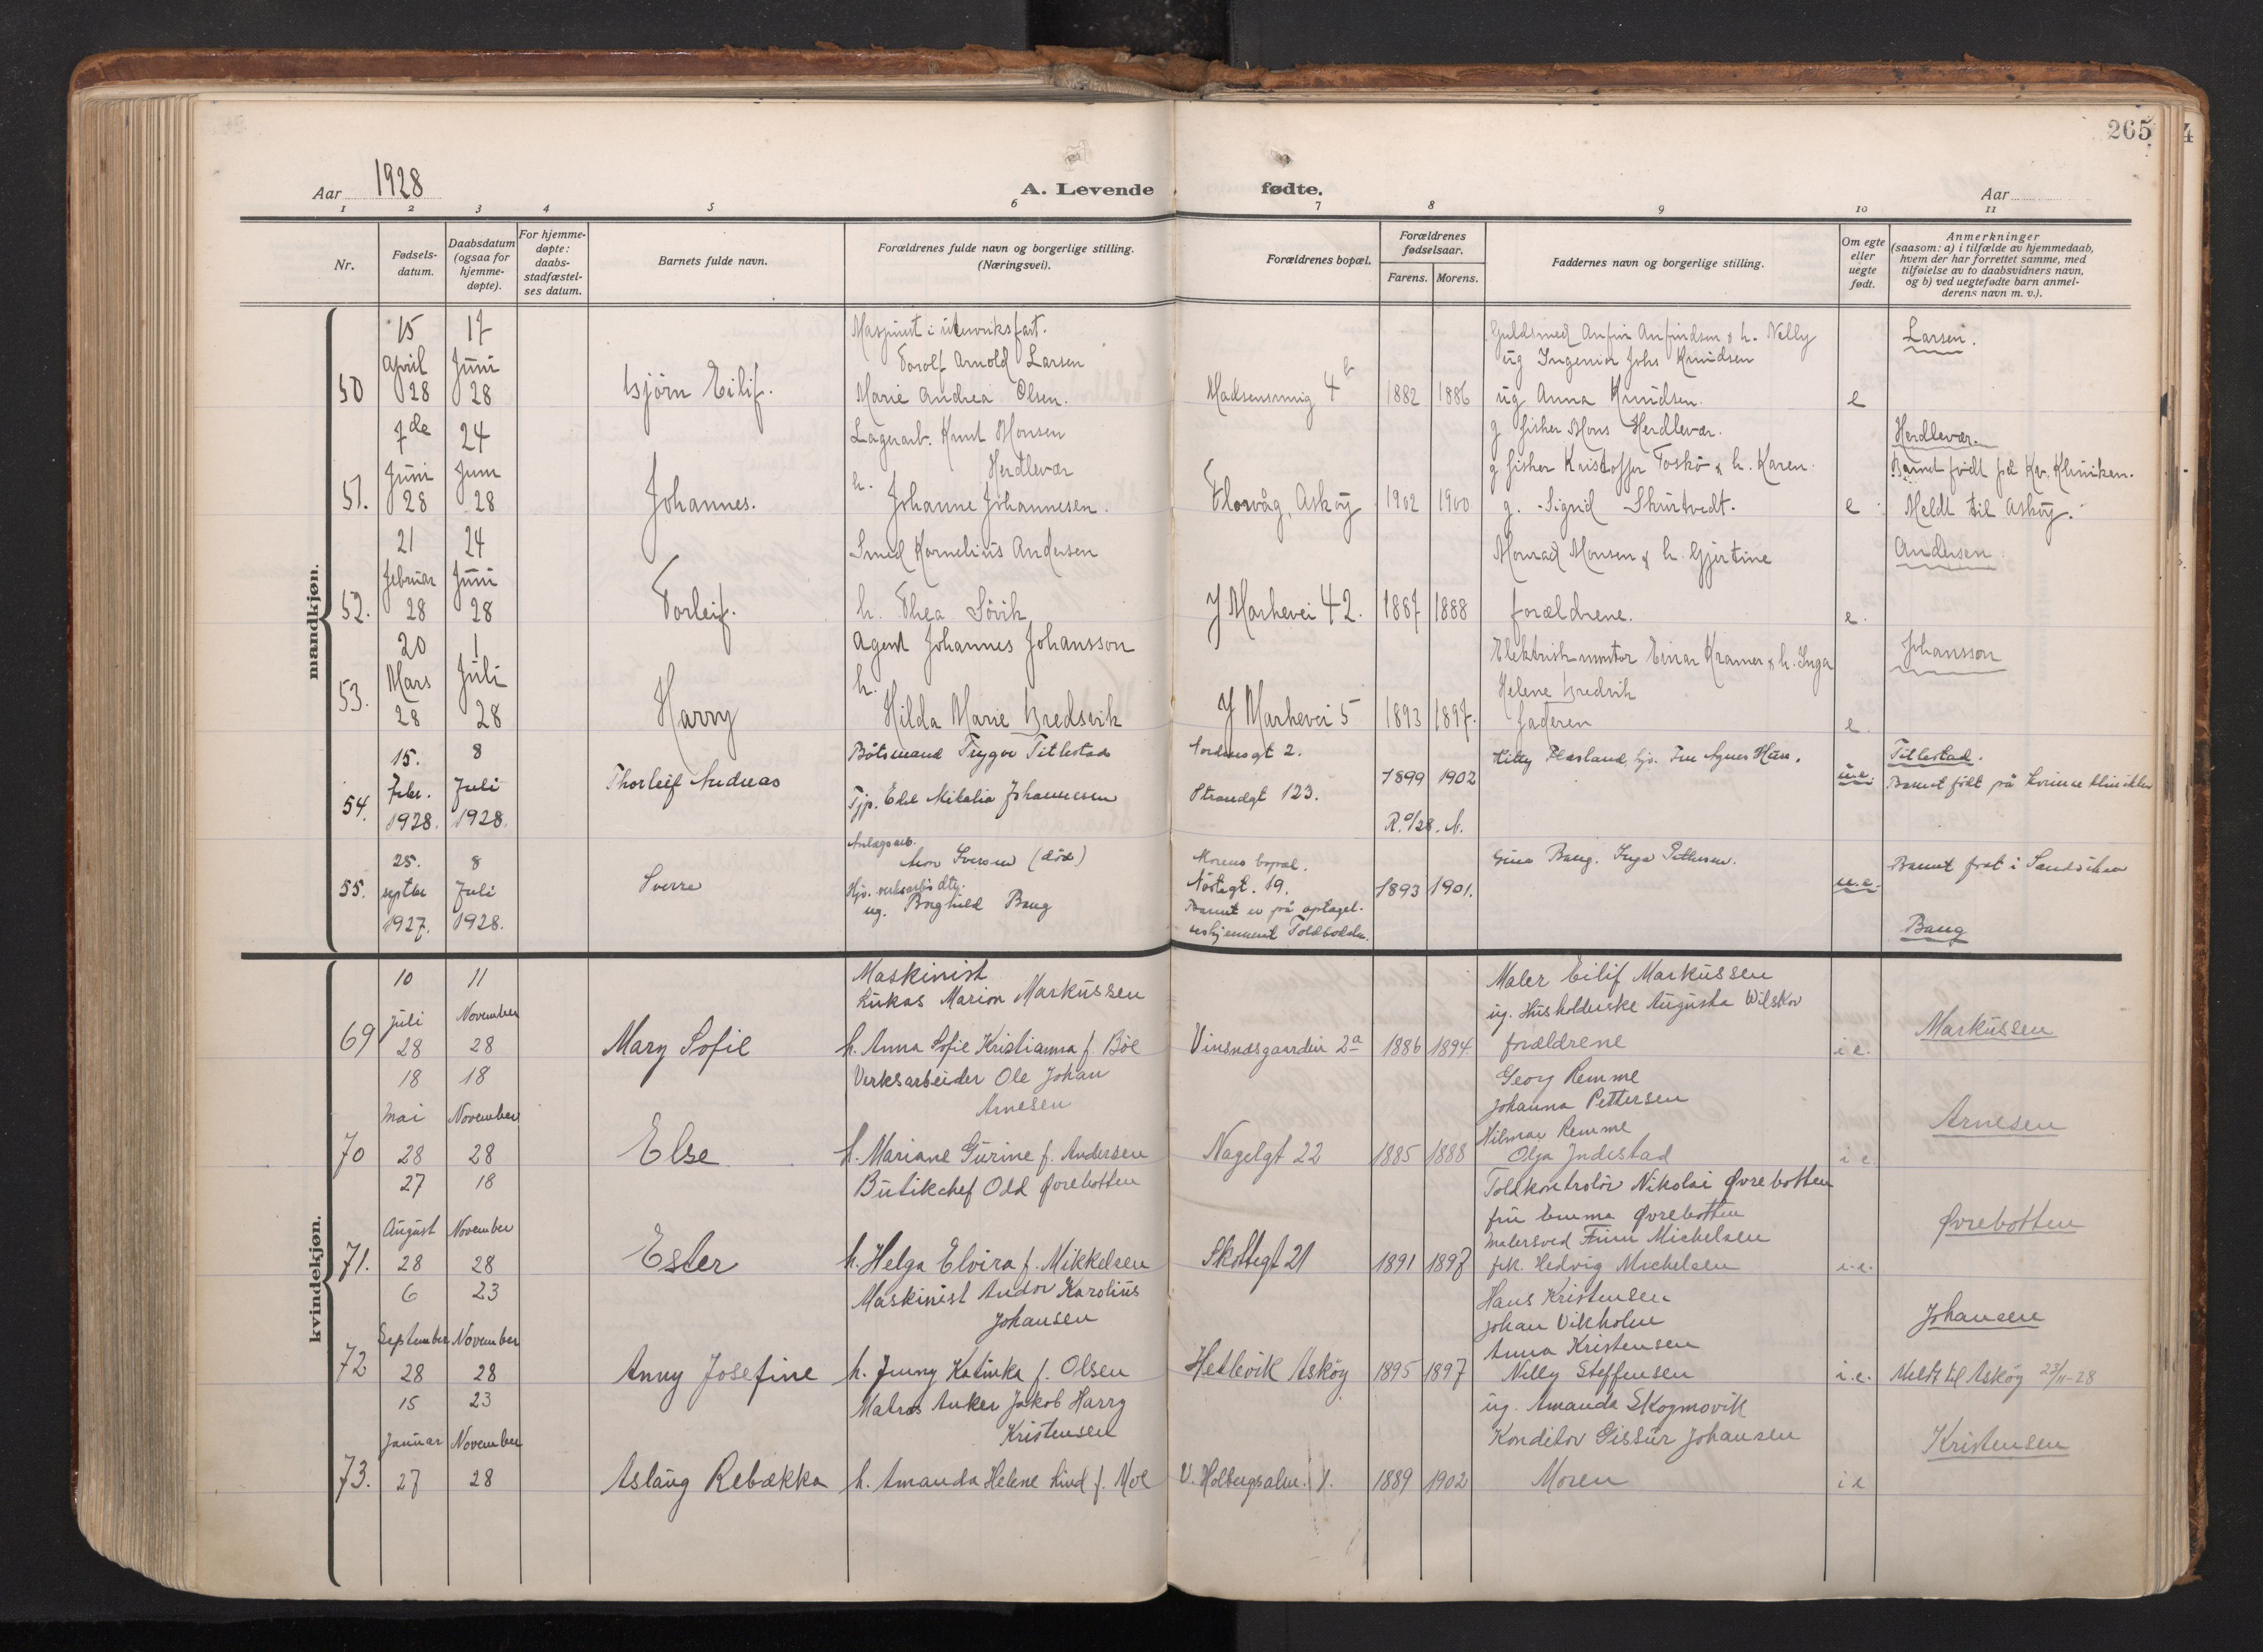 265
Aar 1928
A. Levende fødte.
Aar
1 2 3 4 5 6 7 8 9 10 11
Nr.
Fødsels-
datum.
Daabsdatum
(ogsaa for
hjemme-
døpte).
For hjemme-
døpte:
daabs-
stadfæstel-
ses datum.
Barnets fulde navn.
Forældrenes fulde navn og borgerlige stilling.
(Næringsvei).
Forældrenes bopæl.
Forældrenes
fødselsaar.
Farens. Morens.
Faddernes navn og borgerlige stilling.
Om egte
eller
uegte
født.
Anmerkninger
(saasom: a) i tilfælde av hjemmedaab,
hvem der har forrettet samme, med
tilføielse av to daabsvidners navn,
og b) ved uegtefødte barn anmel-
derens navn m. v.).
mandkjøn.
50
15 April 28
17 Juni 28
Bjørn Eilif.
Maskinist i utenriksfart.
Torolf Arnold Larsen
Marie Andrea Olsen.
4b
1882 1886
Guldsmed Anfin Anfindsen & h. Nelly
ug Ingeniør Johs Knudsen
ug Anna Knudsen.
e
Larsen.
51.
7de Juni 28
24 Juni 28
Johannes.
Lagerarb. Knut Monsen
Herdlevær
h. Johanne Johannesen.
Florvåg, Askøy
1902 1900
g fisker Mons Herdlevær.
g fisker Kristoffer Toskø & h. Karen.
g. Sigrid Skurtvedt.
e
Herdlevær.
Barnet født på Kv. Kliniken.
Meldt til Askøy.
52.
21 februar 28
24 Juni 28
Torleif.
Smed Kornelius Andersen
h. Thea Søvik
Y Markevei 42.
1887 1888
Monrad Monsen & h. Gjertine
forældrene.
e.
Andersen
53.
20 Mars 28
1 Juli 28
Harry
Agent Johannes Johansson
h.
Hilda Marie Bredsvik
Y Markevei 5
1893 1897.
Elektrisk montør Einar Kramer & h. Inga
Helene Bredvik
faderen
e.
Johansson
54.
15. Febr. 1928.
8 Juli 1928.
Thorleif Andreas
Båtsmand Trygve Titlestad
Tjp. Edel Mikalia Johannessen
Nordnesgt 2.
Strandgt 123.
1899 1902
Kitty Flesland, hjv. Fru Agnes
u.e.
Titlestad.
Barnet født på kvinneklinikken
55.
25. septbr 1927.
8 Juli 1928.
Sverre
Anlægsarb.
Iversen (død)
ug. Borghild Baug
Morens bopæl.
Nøstegt. 19.
Barnet er på optagel-
seshjemmet Toldboden.
1893 1901.
Baug. Inga Pettersen.
u.e.
Barnet født i Sandviken
Baug
kvindekjøn.
69
10 juli 28
11 November 28
Mary Sofie
Maskinist
Lukas Marion Markussen
h. Anna Sofie Kristianna f. Bøe
Vinsnæsgaarden 2a
1886 1894
Maler Eilif Markussen
ug. Husholderske Augusta Wilskov
forældrene
i e.
Markussen
70
18 mai 28
18 November 28
Else
Verksarbeider Ole Johan
Arnesen
h. Mariane Gurine f. Andersen
Nagelgt 22
1885 1888
Georg Remme
Johanna Pettersen
Hilmar Remme
Olga Indestad
i e.
Arnesen
71.
27 August 28
18 November 28
Ester
Butikchef Odd Øvrebotten
h. Helga Elvira f. Mikkelsen
Skottegt 21
1891 1897
Toldkontrolør Nikolai Øvrebotten
fru Emma Øvrebotten
malersvd Finn Michelsen
frk. Hedvig Michelsen
i.e.
Øvrebotten
72
6 September 28
23 November 28
Anny Josefine
Maskinist Andor Karolius
Johansen
h. Jenny Katinka f. Olsen
Hetlevik Askøy
1895 1897
Hans Kristensen
Johan Vikholm
Anna Kristensen
Nelly Steffensen
i.e.
Johansen
Meldt til Askøy 23/11-28
73.
15 Januar 27
23 November 28
Aslaug Rebækka
Matros Anker Jakob Harry
Kristensen
h. Amanda Helene Lind f. Moe
V. Holbergsalm. 1.
1889 1902
ug. Amanda Skogmovik
Konditor Gissur Johansen
Moren
i e
Kristensen